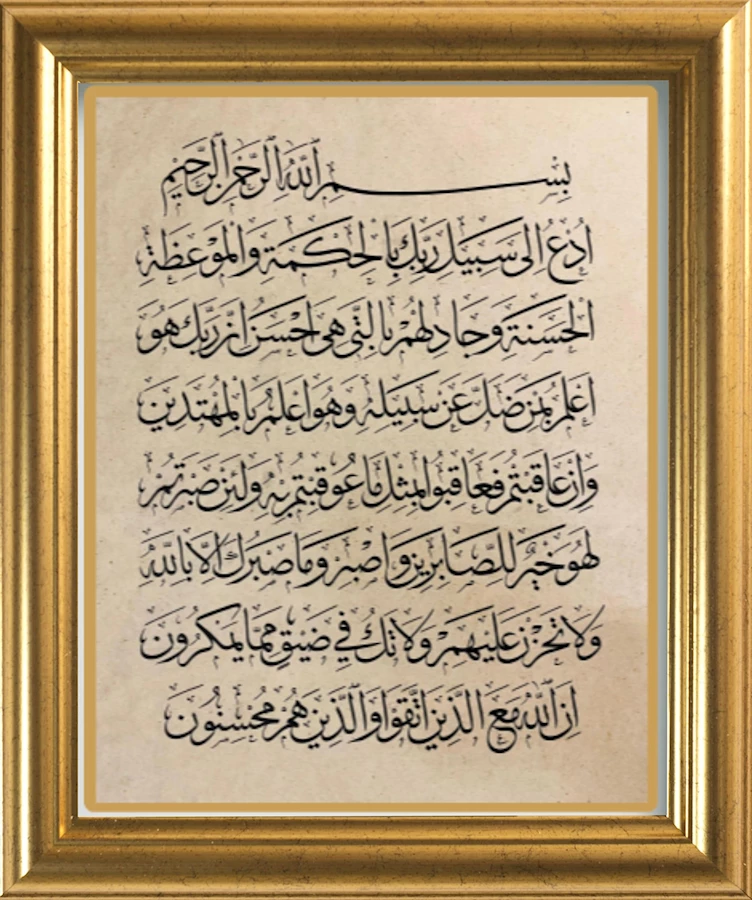 بِسْمِ اللَّهِ الرَّحْمَٰنِ الرَّحِيمِ
اُدْعُ اِلٰى سَبِيلِ رَبِّكَ بِالْحِكْمَةِ وَالْمَوْعِظَةِ
الْحَسَنَةِ وَجَادِلْهُمْ بِالَّتِي هِيَ اَحْسَنُ اِنَّ رَبَّكَ هُوَ
اَعْلَمُ بِمَنْ ضَلَّ عَنْ سَبِيلِهِ وَهُوَ اَعْلَمُ بِالْمُهْتَدِينَ
وَاِنْ عَاقَبْتُمْ فَعَاقِبُوا بِمِثْلِ مَا عُوقِبْتُمْ بِهِ وَلَئِنْ صَبَرْتُمْ
لَهُوَ خَيْرٌ لِلصَّابِرِينَ وَاصْبِرْ وَمَا صَبْرُكَ اِلَّا بِاللَّهِ
وَلَا تَحْزَنْ عَلَيْهِمْ وَلَا تَكُ فِي ضَيْقٍ مِمَّا يَمْكُرُونَ
اِنَّ اللَّهَ مَعَ الَّذِينَ اتَّقَوْا وَالَّذِينَ هُمْ مُحْسِنُونَ